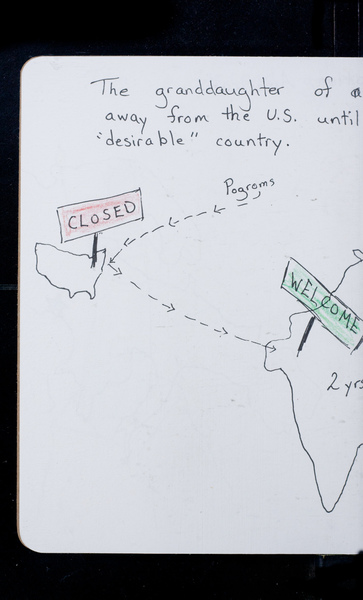 The granddaughter of a
away from the U.S. until
"desirable" country.
Pogroms
CLOSED
WELCOME
2 yrs